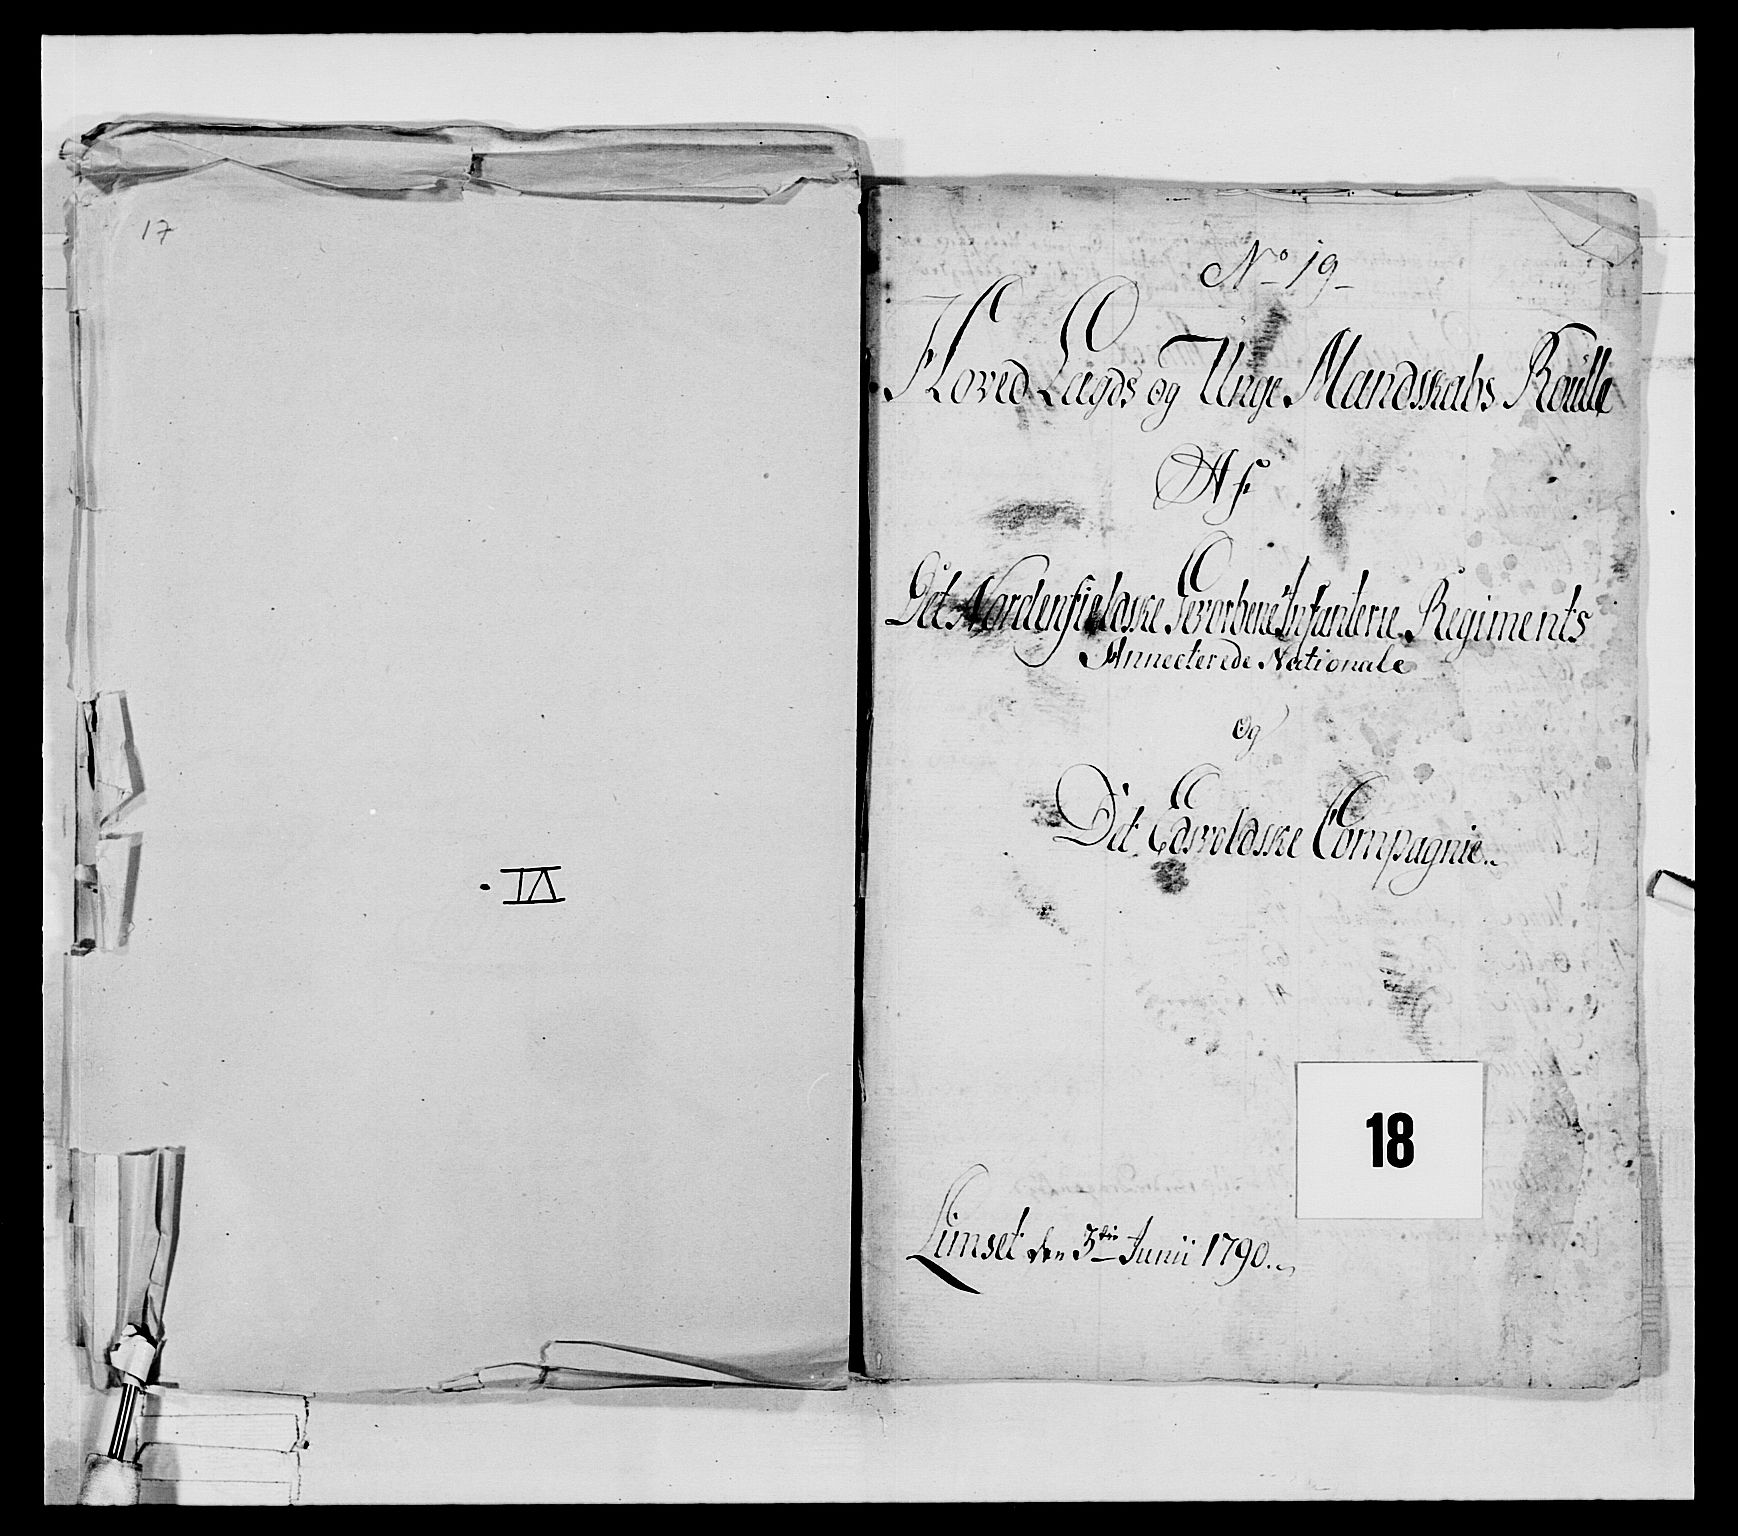 17
IV
No 19
Hoved Lægds og Unge Mandskabs Roulle
Af
Det Nordenfieldske Gevorbene Infanterie Regiments
Annecterede Nationale
Og
Det Edsvoldske Compagnie
18
Limset den 3die Junii 1790.